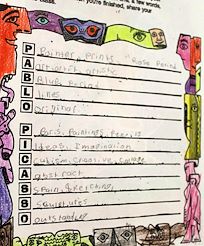 you're finished, share your
P Painter, Prints "Rose Period
A artwork, artistic
B Blue Period
L lines
O original
P Paris, Paintings, Pencils
I Ideas, Imagination
C cubism, creative, collage
A abstract
S Spain, Sketching
S Sculptures
O outstanding